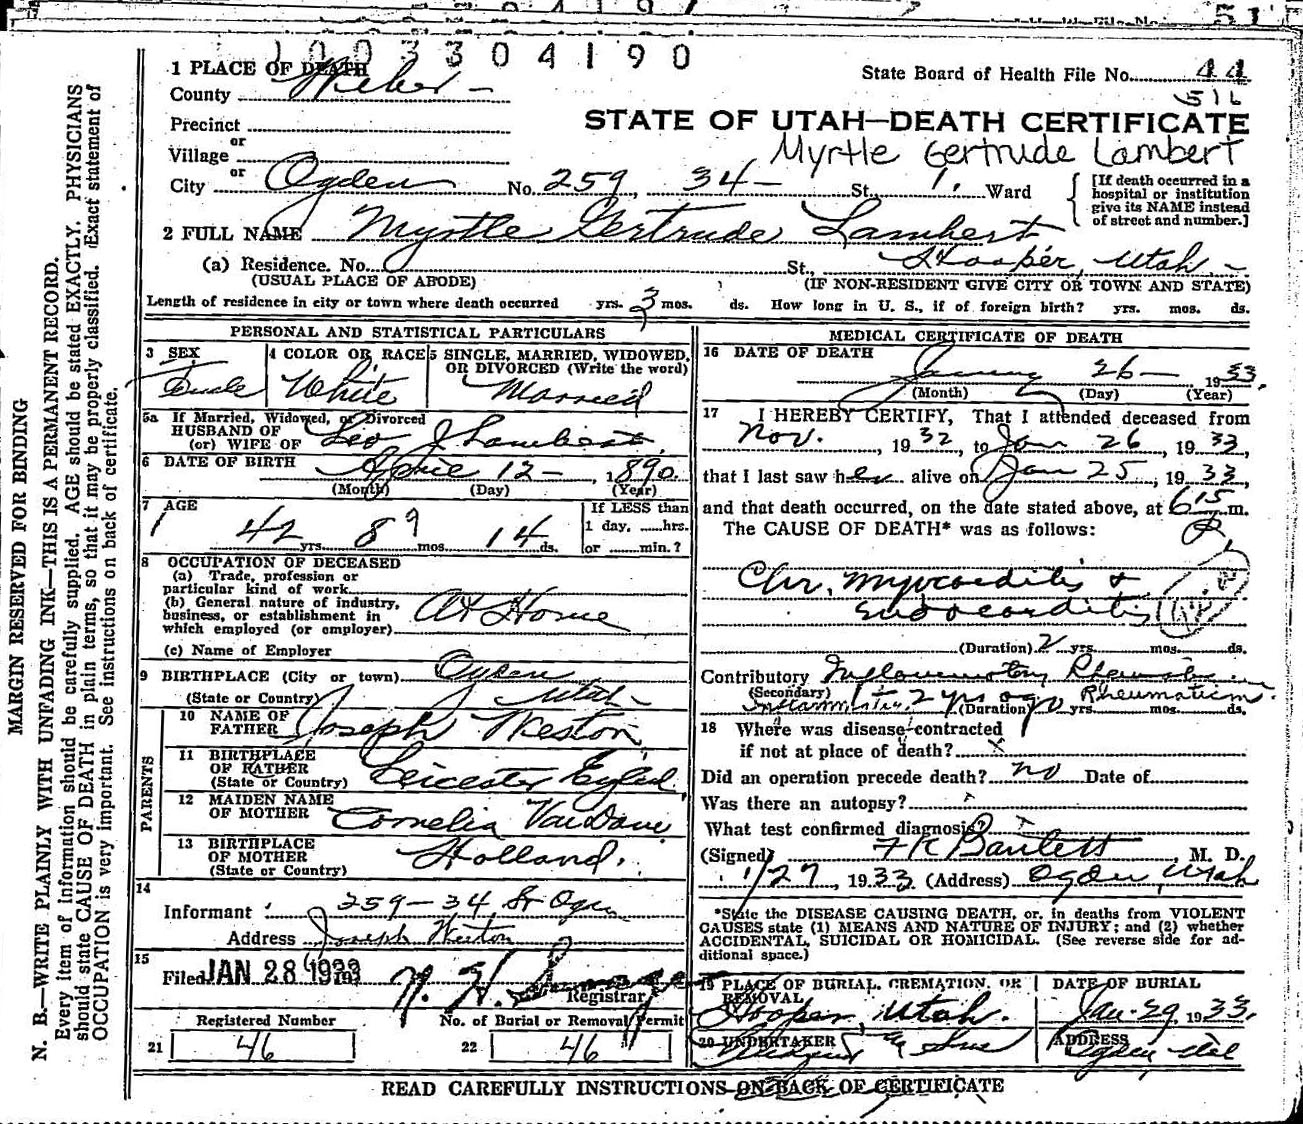 1003304190
1 PLACE OF DEATH
County Weber
State Board of Health File No. 44
516
Precinct
or
Village
STATE OF UTAH—DEATH CERTIFICATE
Myrtle Gertrude Lambert
or
City Ogden No. 259, 34 St., 1. Ward
[If death occurred in a hospital or institution give its NAME instead of street and number.]
2 FULL NAME Myrtle Gertrude Lambert
(a) Residence. No. St., Hooper, Utah
(USUAL PLACE OF ABODE) (IF NON-RESIDENT GIVE CITY OR TOWN AND STATE)
Length of residence in city or town where death occurred yrs. 3 mos. ds. How long in U. S., if of foreign birth? yrs. mos. ds.
PERSONAL AND STATISTICAL PARTICULARS
3 SEX
4 COLOR OR RACE White
5 SINGLE, MARRIED, WIDOWED, OR DIVORCED (Write the word) Married
5a If Married, Widowed, or Divorced
HUSBAND OF
(or) WIFE OF Leo J Lambert
6 DATE OF BIRTH April 12 — , 1890
(Month) (Day) (Year)
7 AGE
42 yrs. 8 9 mos. 14 ds.
If LESS than
1 day, ......hrs.
or ........min.?
8 OCCUPATION OF DECEASED
(a) Trade, profession or
particular kind of work
(b) General nature of industry,
business, or establishment in
which employed (or employer) At Home
(c) Name of Employer
9 BIRTHPLACE (City or town) Ogden
(State or Country) Utah
PARENTS
10 NAME OF
FATHER Joseph Weston
11 BIRTHPLACE
OF FATHER
(State or Country) Leicester Egld.
12 MAIDEN NAME
OF MOTHER Cornelia
13 BIRTHPLACE
OF MOTHER
(State or Country) Holland.
14
Informant 259—34 St Ogden
Address Joseph Weston
15
Filed JAN 28 1933 193
N. H.
Registrar
Registered Number No. of Burial or Removal Permit
21 46 22 46
MEDICAL CERTIFICATE OF DEATH
16 DATE OF DEATH
January 26 — 1933.
(Month) (Day) (Year)
17 I HEREBY CERTIFY, That I attended deceased from
Nov. , 1932, to Jan 26, 1933,
that I last saw her alive on Jan 25, 1933,
and that death occurred, on the date stated above, at 6 15 m.
The CAUSE OF DEATH* was as follows:
Chr. Myocarditis &
Endocarditis
(Duration) 2 yrs. mos. ds.
Contributory Inflammatory Rheumatism
(Secondary) 2 yrs ago Rheumatism
(Duration) yrs. mos. ds.
18 Where was disease contracted
if not at place of death?
Did an operation precede death? no Date of
Was there an autopsy?
What test confirmed diagnosis?
(Signed) F K Bartlett M. D.
1/27, 1933 (Address) Ogden, Utah
*State the DISEASE CAUSING DEATH, or, in deaths from VIOLENT
CAUSES state (1) MEANS AND NATURE OF INJURY; and (2) whether
ACCIDENTAL, SUICIDAL OR HOMICIDAL. (See reverse side for ad-
ditional space.)
19 PLACE OF BURIAL, CREMATION, OR
REMOVAL
Hooper, Utah.
DATE OF BURIAL
Jan. 29, 1933.
20 UNDERTAKER & Sons
ADDRESS
Ogden
READ CAREFULLY INSTRUCTIONS ON BACK OF CERTIFICATE
MARGIN RESERVED FOR BINDING
N. B.—WRITE PLAINLY WITH UNFADING INK—THIS IS A PERMANENT RECORD.
Every item of information should be carefully supplied. AGE should be stated EXACTLY. PHYSICIANS
should state CAUSE OF DEATH in plain terms, so that it may be properly classified. Exact statement of
OCCUPATION is very important. See instructions on back of certificate.